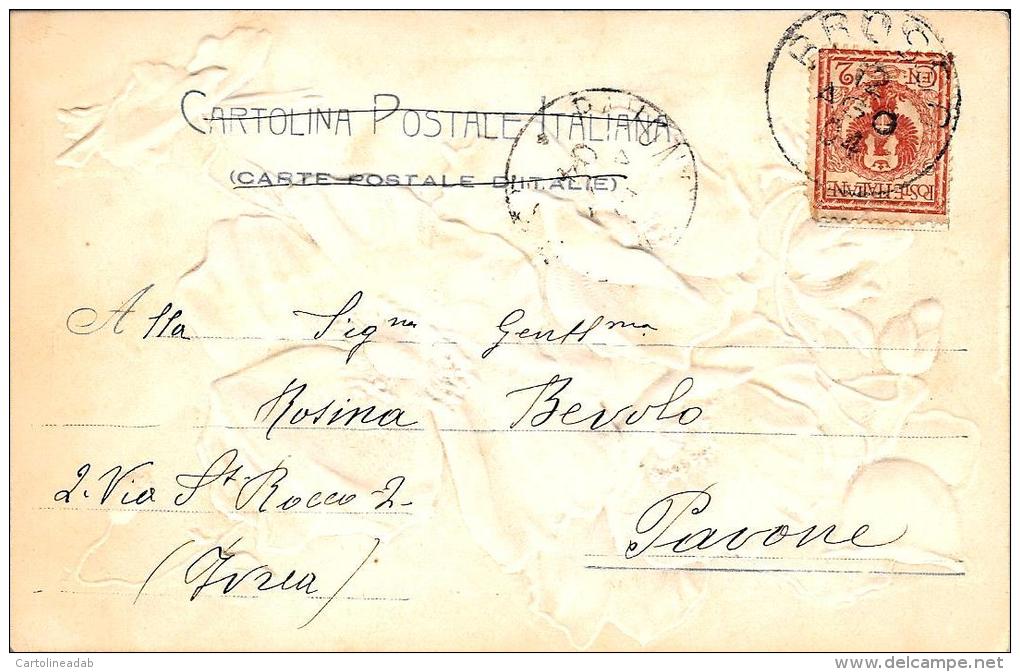 CARTOLINA POSTALE ITALIANA
(CARTE POSTALE D'ITALIE)
POSTE ITALIANE
CEN. 2
Alla Signa Gentlma
Rosina Bevolo
2. Via St. Rocco 2-
Pavone
(Ivrea)
Cartolineadab
delcampe.net